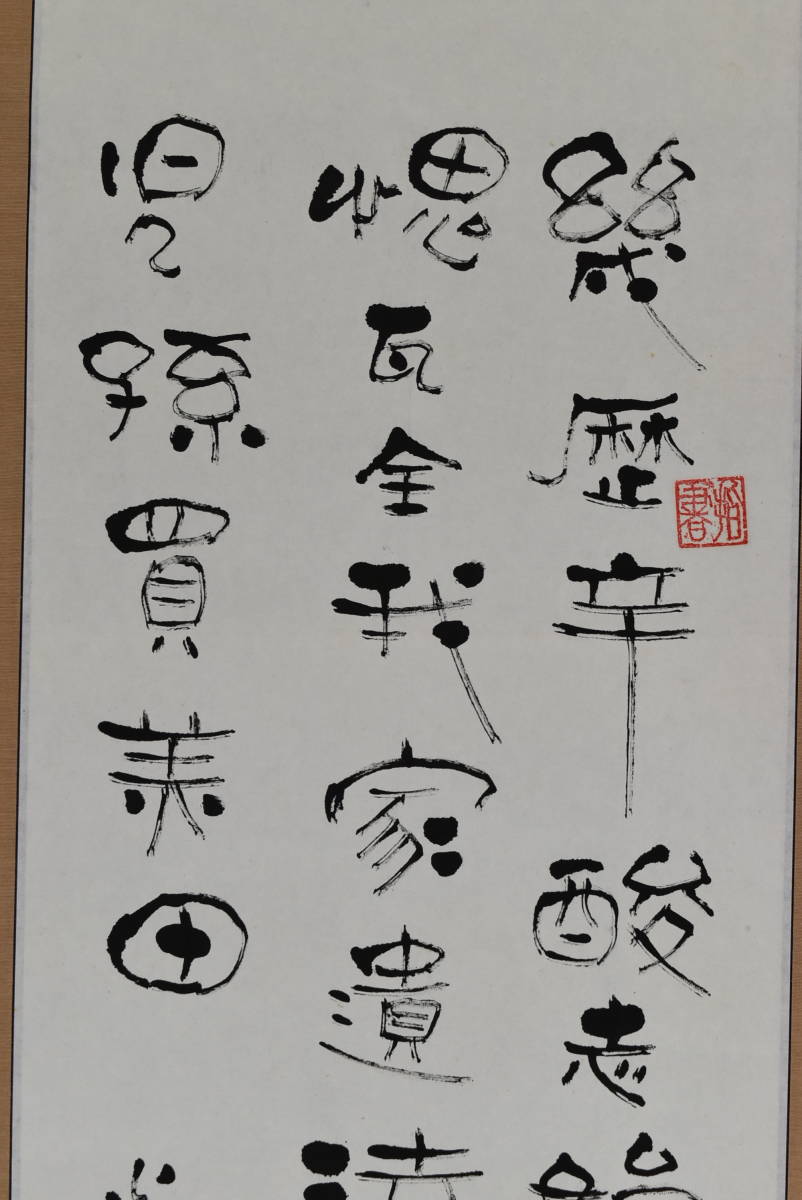 幾歴辛酸志
愧瓦全我家遺
児孫買美田